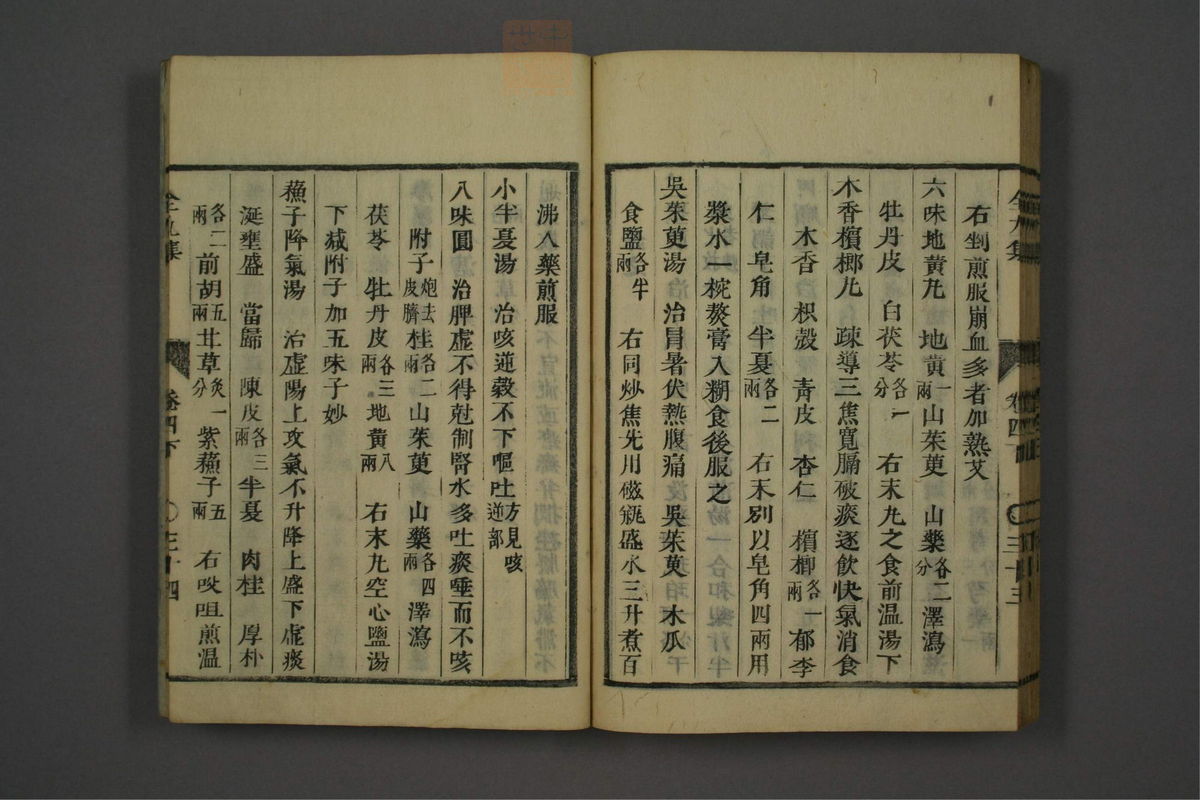 右剉煎服崩血多者加熟艾
六味地黃圥 地黃一兩山茱萸 山藥各二分澤瀉
牡丹皮 白茯苓各一分 右末圥之食前温湯下
木香檳榔圥 疎導三焦寬膈破痰逐飲快氣消食
木香 枳殼 青皮 杏仁 檳榔各一兩郁李
仁 皂角 半夏各二兩 右末別以皂角四兩用
漿水一椀熬膏入糊食後服之
吳茱萸湯 治冐暑伏熱腹痛 吳茱萸 木瓜
食鹽各半兩 右同炒焦先用磁瓶盛水三升煮百
全九集 卷四下 三十三
沸入藥煎服
小半夏湯 治咳逆穀不下嘔吐方見咳逆部
八味圓 治脾虛不得尅制腎水多吐痰唾而不咳
附子炮去皮臍桂各二兩山茱萸 山藥各四兩澤瀉
茯苓 牡丹皮各三兩地黃八兩 右末圥空心鹽湯
下减附子加五味子妙
蘓子降氣湯 治虛陽上攻氣不升降上盛下虛痰
涎壅盛 當歸 陳皮各三兩半夏 肉桂 厚朴
各二兩前胡五兩甘草炙一分紫蘓子五兩 右㕮咀煎温
全九集 卷四下 三十四